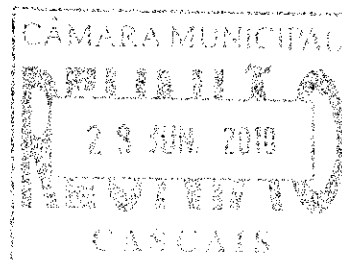 CÂMARA MUNICIPAL
REUNIÃO
JUN. 2010
CASCAIS